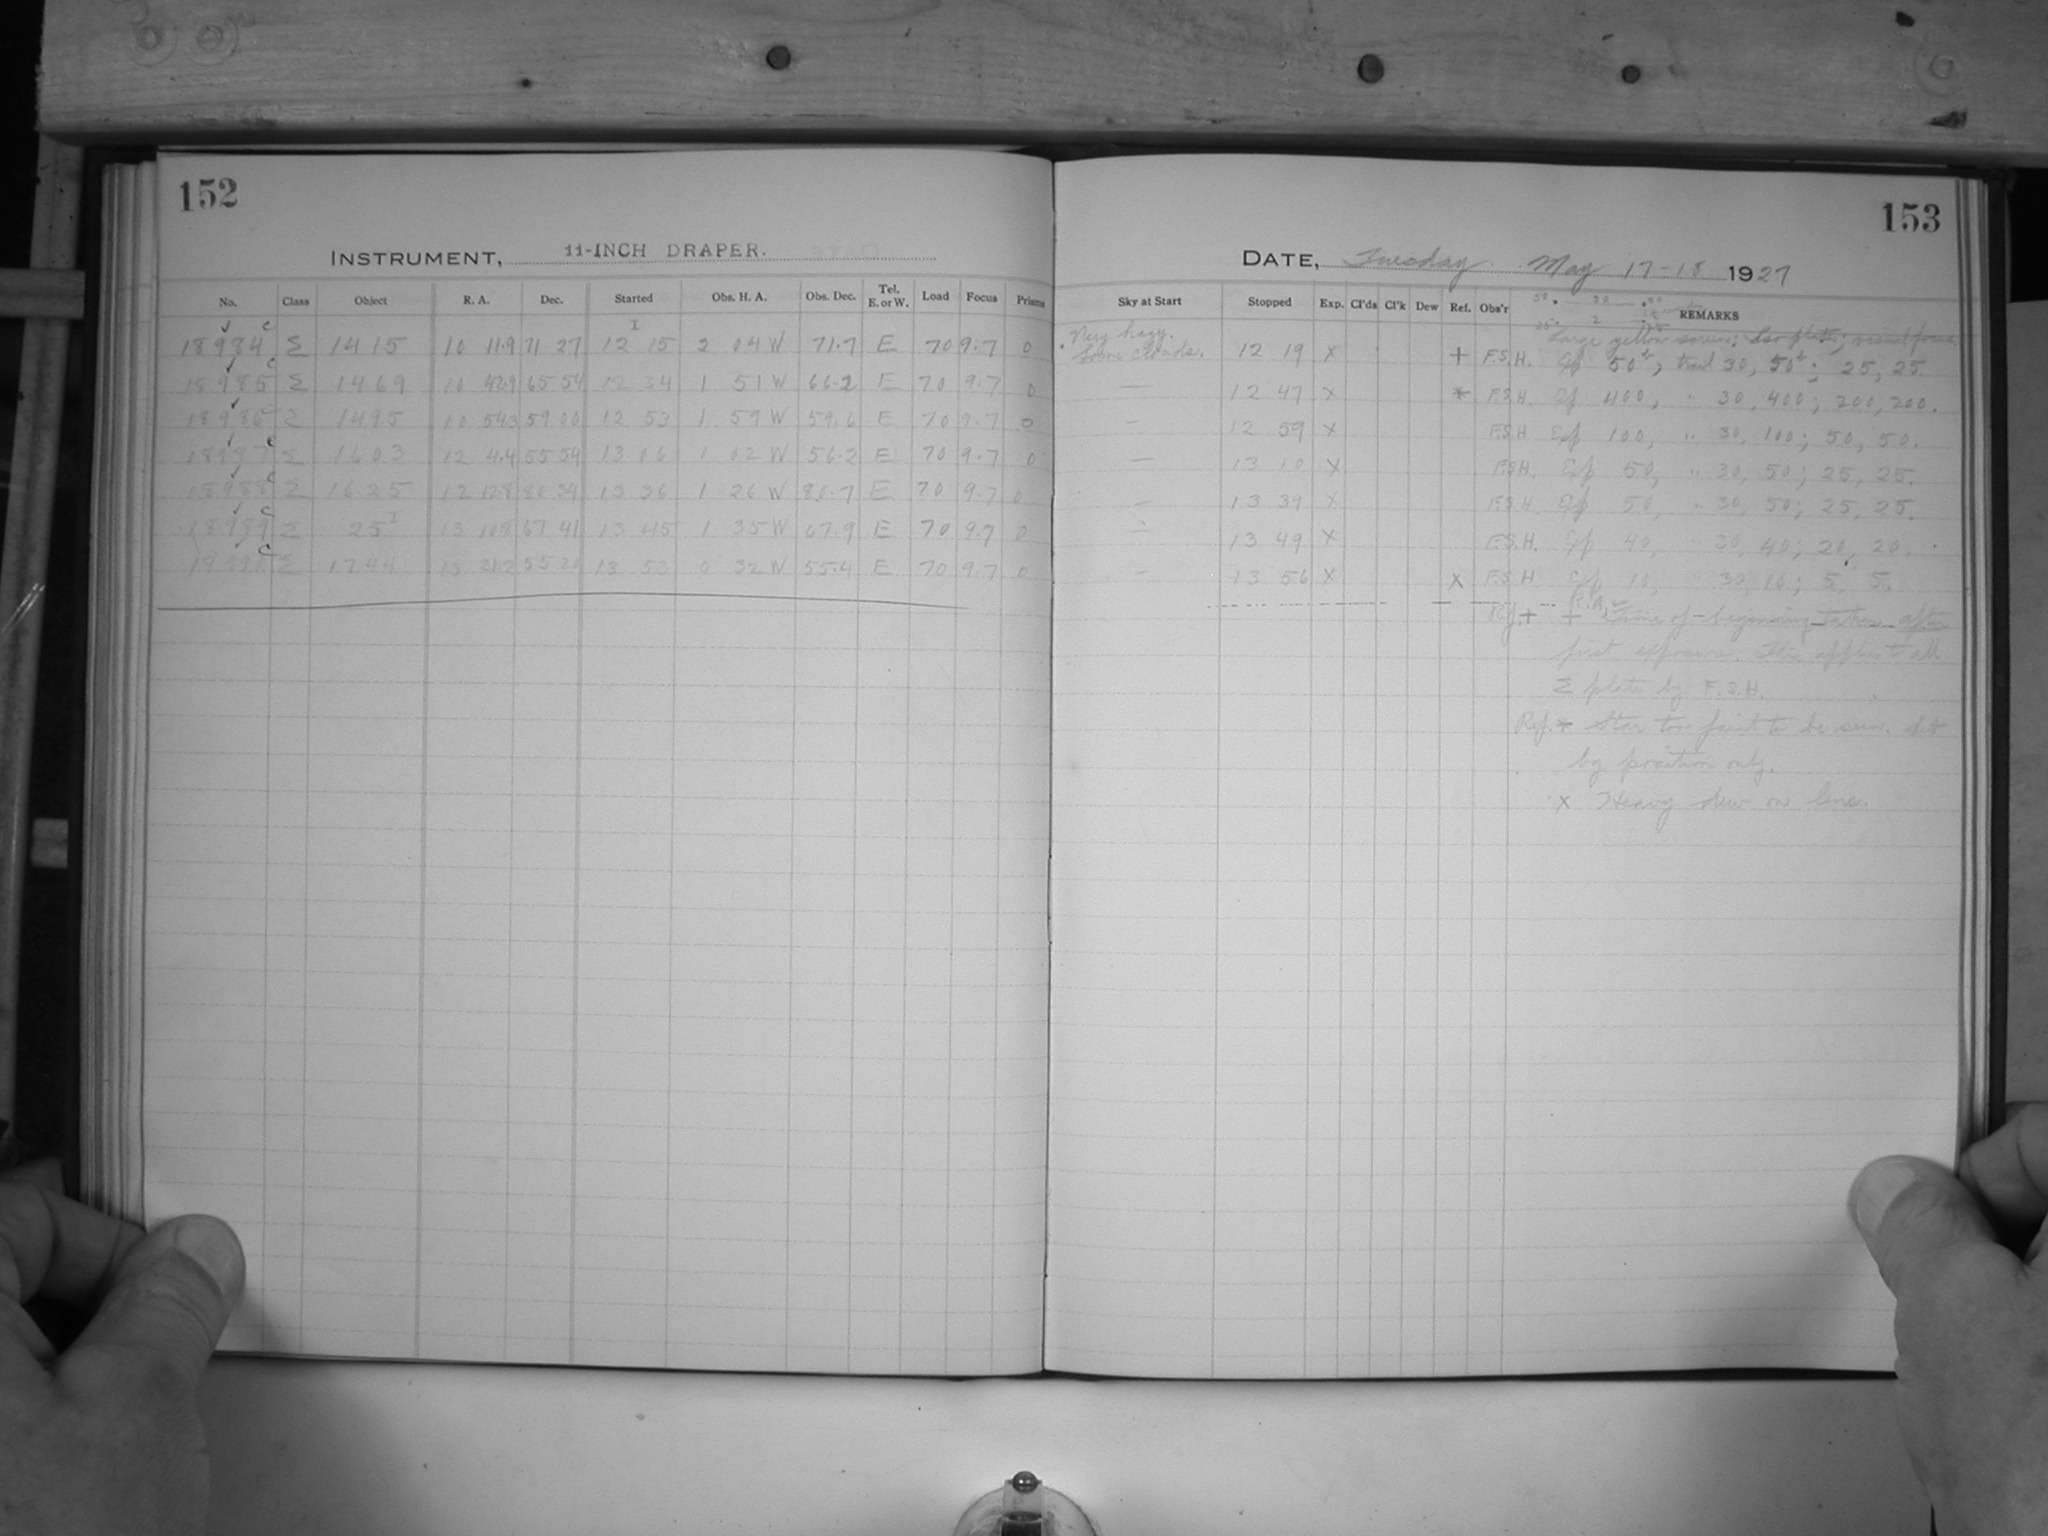 152
INSTRUMENT, 11-INCH DRAPER.
No. Class Object R. A. Dec. Started Obs. H. A. Obs. Dec. Tel. E. or W. Load Focus Prisms
18984 Σ 1415 10 11.9 71 27 12 15 2 04 W 71.7 E 70 9.7 0
18985 Σ 1469 10 42.9 65 54 12 34 1 51 W 66.2 E 70 9.7 0
18986 Σ 1495 10 54.3 59 00 12 53 1 59 W 59.6 E 70 9.7 0
18987 Σ 1603 12 4.4 55 54 13 06 1 02 W 56.2 E 70 9.7 0
18988 Σ 1625 12 12.8 80 34 13 36 1 26 W 80.7 E 70 9.7 0
18989 Σ 25 I 13 10.8 67 41 13 45 1 35 W 67.9 E 70 9.7 0
18990 Σ 1744 13 21.2 55 20 13 53 0 32 W 55.4 E 70 9.7 0
153
DATE, Tuesday May 17-18 1927
Sky at Start Stopped Exp. Cl'ds Cl'k Dew Ref. Obs'r REMARKS
Large yellow screen; Iso plate; visual focus
Very hazy. Some clouds. 12 19 X + F.S.H. Exp 50s, trail 30, 50s; 25, 25.
— 12 47 X * F.S.H. Exp 400, " 30, 400; 200, 200.
— 12 59 X F.S.H Exp 100, " 30, 100; 50, 50.
— 13 10 X F.S.H. Exp 50, " 30, 50; 25, 25.
— 13 39 X F.S.H Exp 50, " 30, 50; 25, 25.
— 13 49 X F.S.H. Exp 40, " 30, 40; 20, 20.
— 13 56 X X F.S.H Exp 10, " 30, 10; 5, 5.
Ref. + + Time of beginning taken after
first exposure. This applies to all
Σ plates by F.S.H.
Ref. * Star too faint to be seen. Set
by position only.
X Heavy dew on lens.